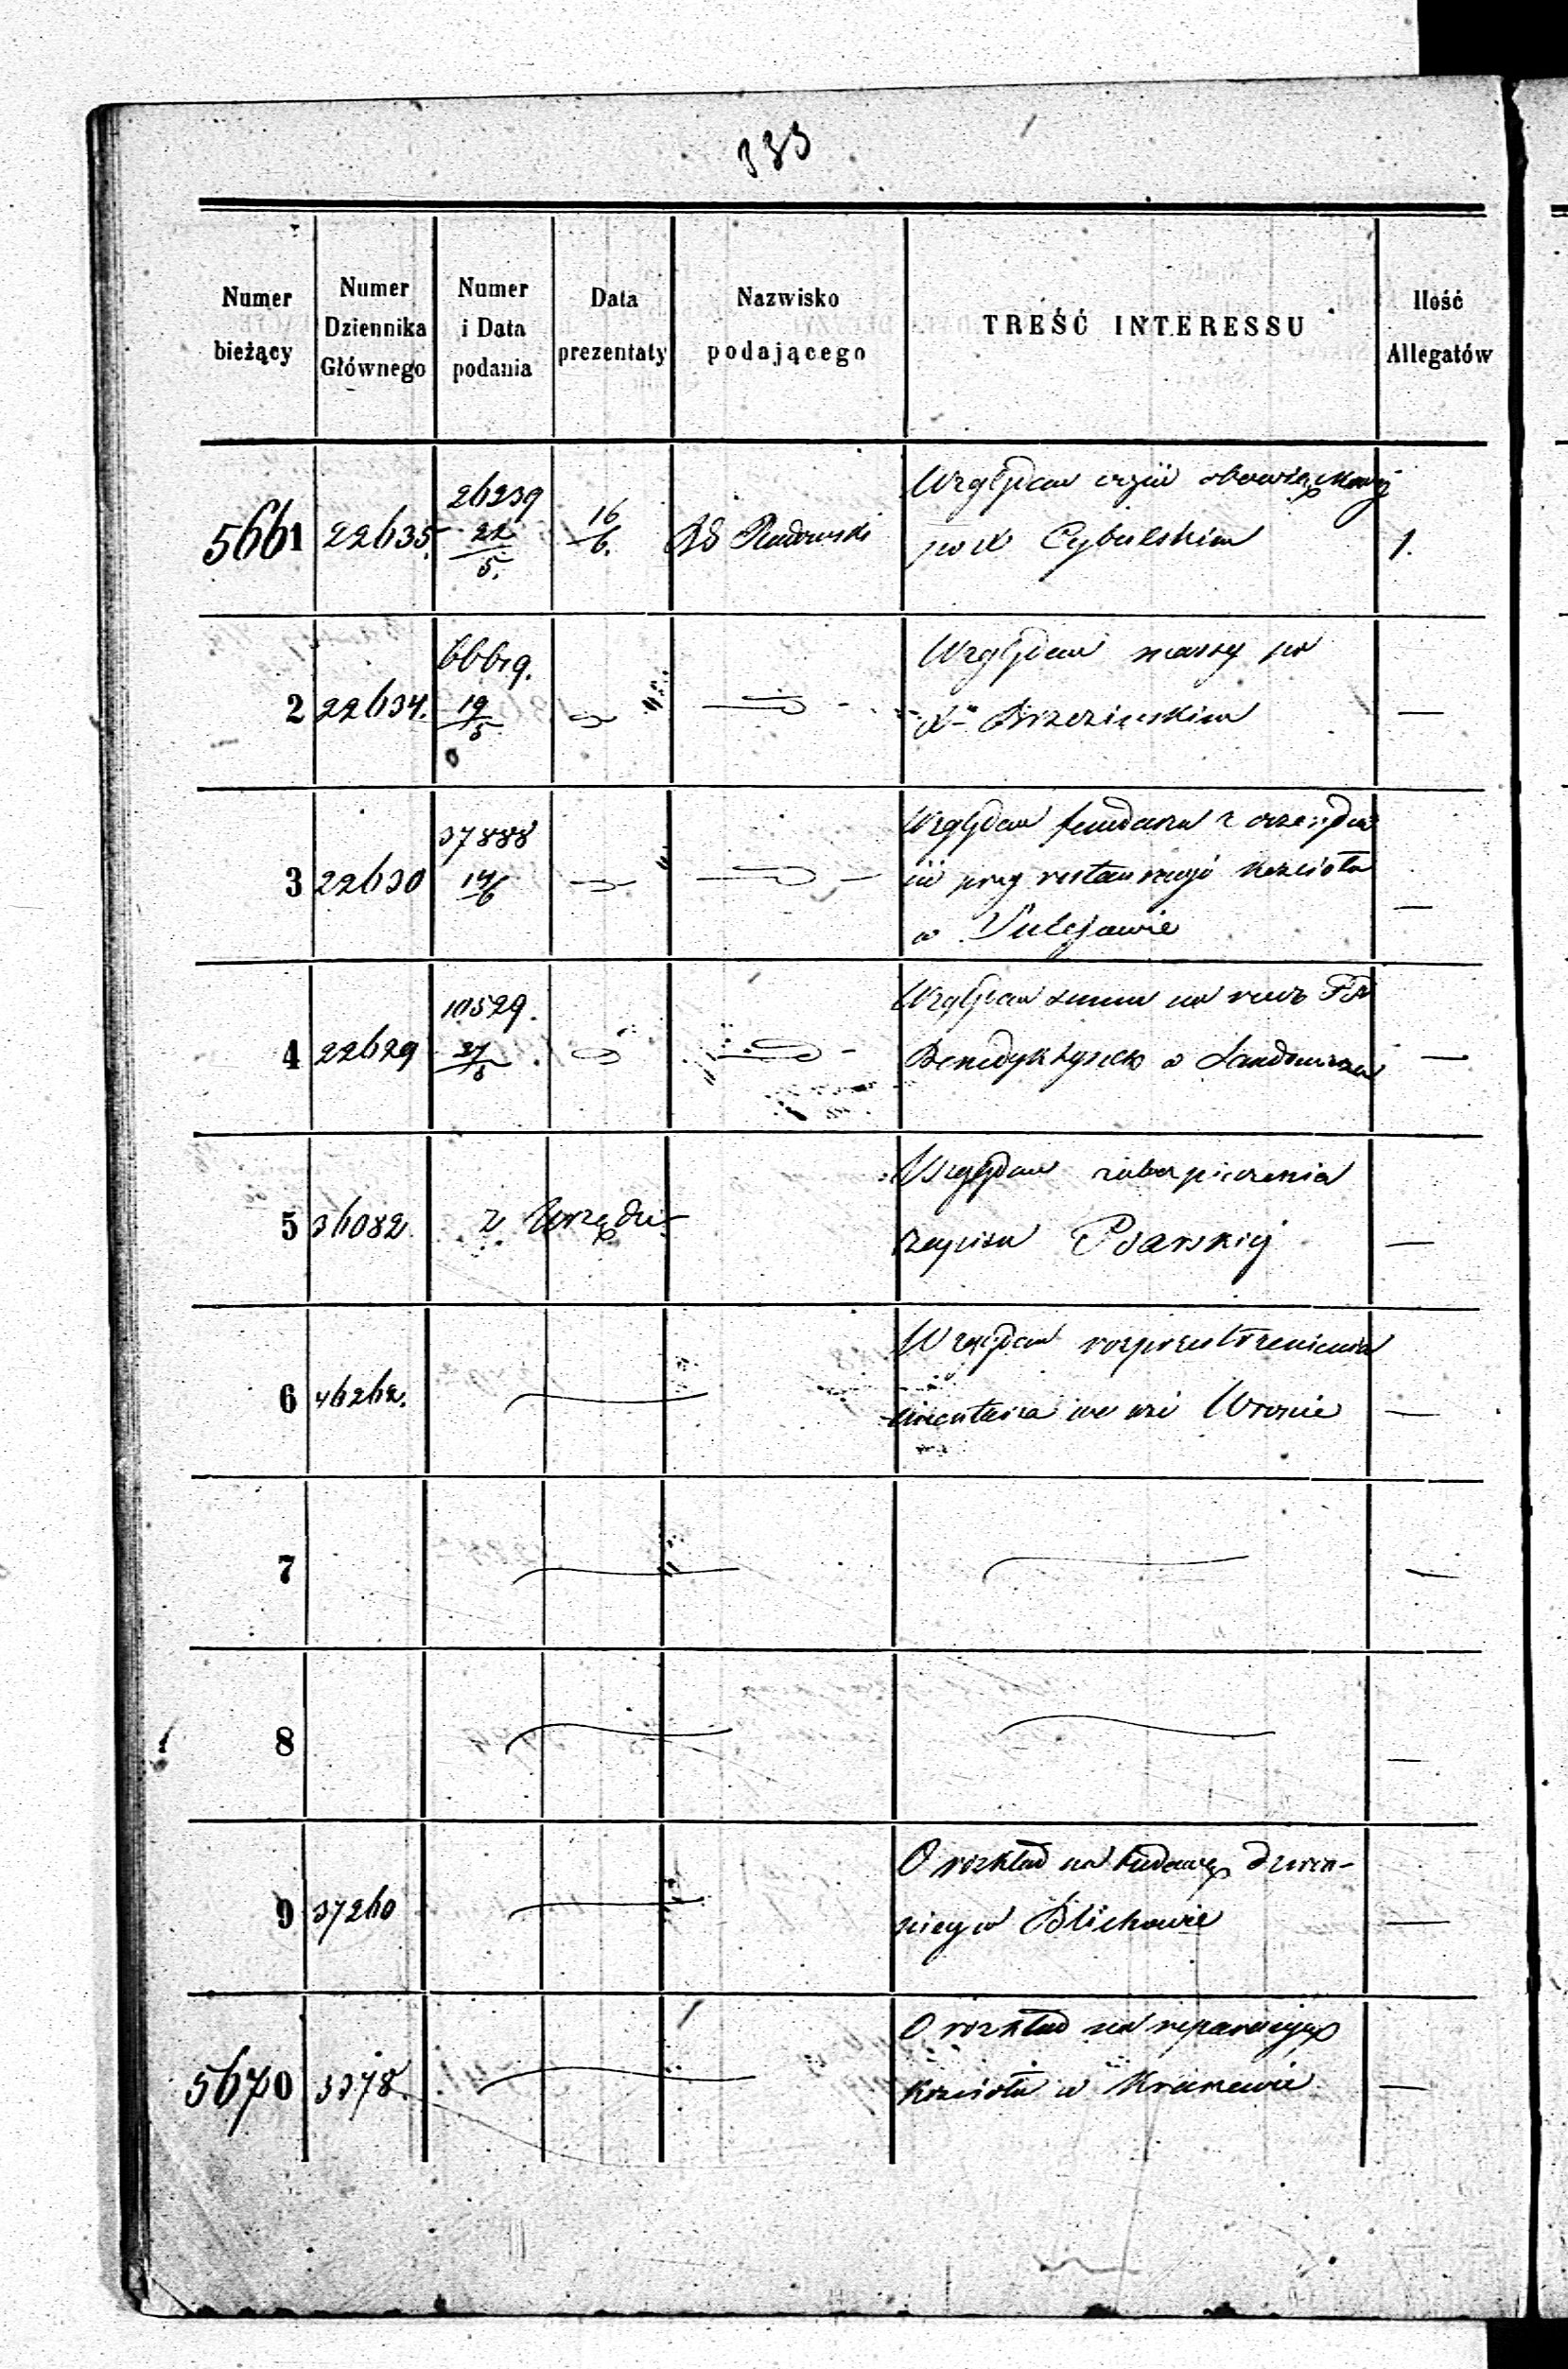 333
Numer bieżący
Numer Dziennika Głównego
Numer i Data podania
Data prezentaty
Nazwisko podającego
TREŚĆ INTERESSU
Ilość Allegatów
5661 22635. 26239 22/5. 16/6. Rd Radomski Względem obowiązkowej
po X Cybulskim 1.
2 22634. 66619. 19/5 Względem massy po
X Brzezińskim —
3 22630 37888 14/6 Względem funduszu z
przy restauracyi kościoła
w Sulejowie —
4 22629 10529. 27/5 Względem summ na rzecz PP
Benedyktynek w Sandomierzu —
5 36082 z Urzędu Względem zabezpieczenia
zapisu Psarskiej —
6 46262. — Względem rozprzestrzenienia
cmentarza we wsi Wronie —
7 — — —
8 — — —
9 37260 — O rozkład na budowę dzwon-
nicy w Blichowie —
5670 3378 — O rozkład na reparacyję
kościoła w —